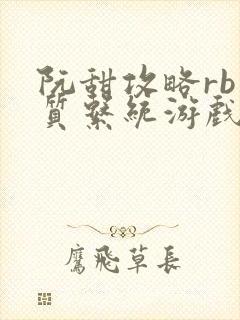 阮甜攻略rb
質系統游戲
鷹飛草長